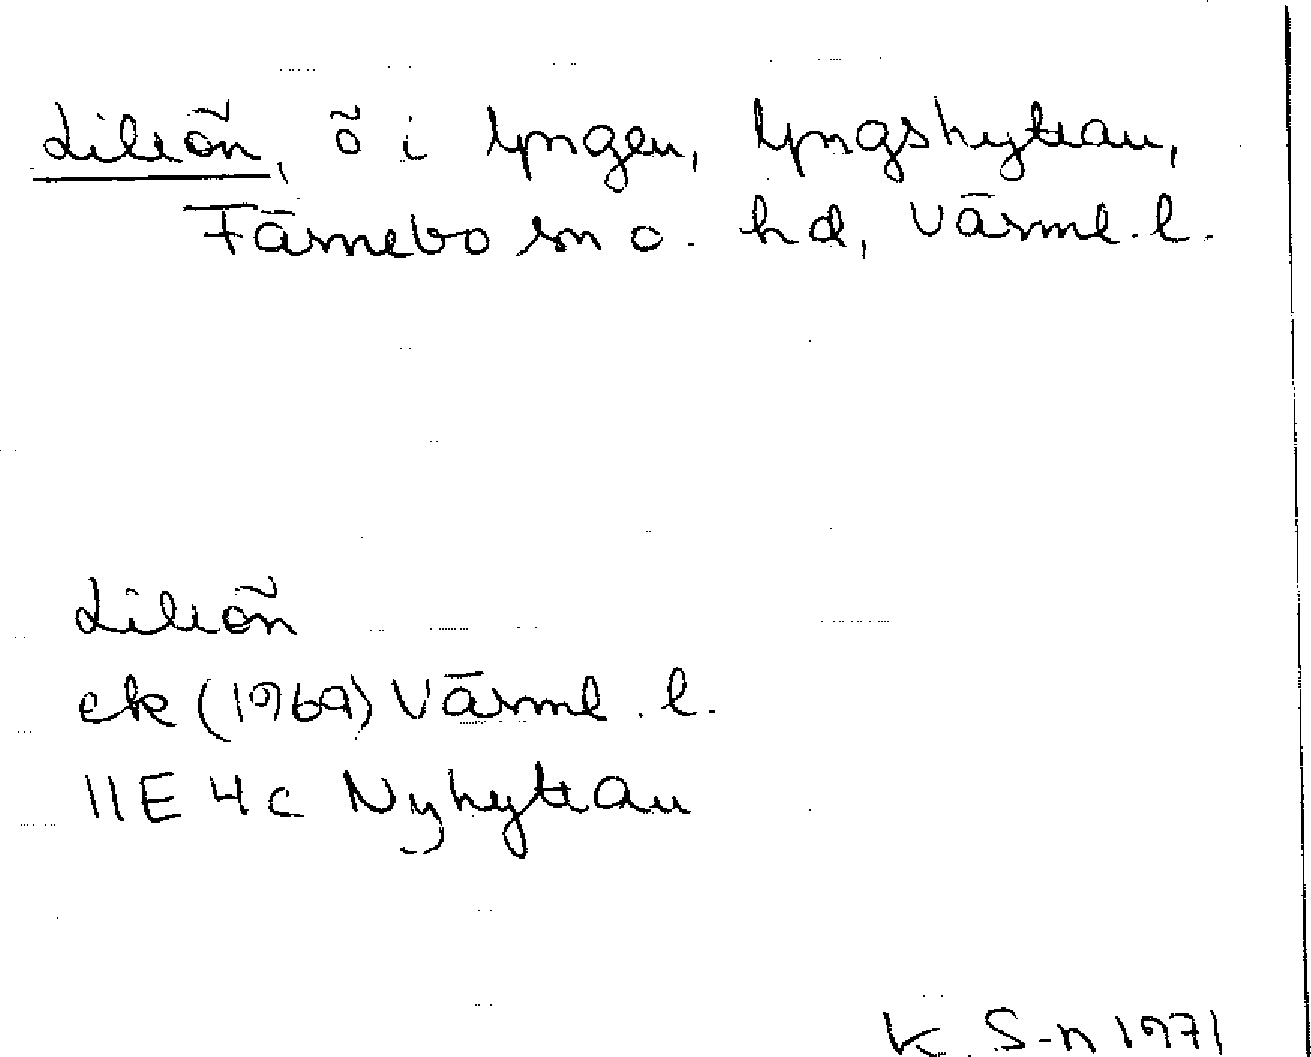 Lillön, ö i Yngen, Yngshyttan,
Färnebo sn o. hd, Värml. l.
Lillön
ek (1969) Värml. l.
11E 4c Nyhyttan
K. S-n 1971